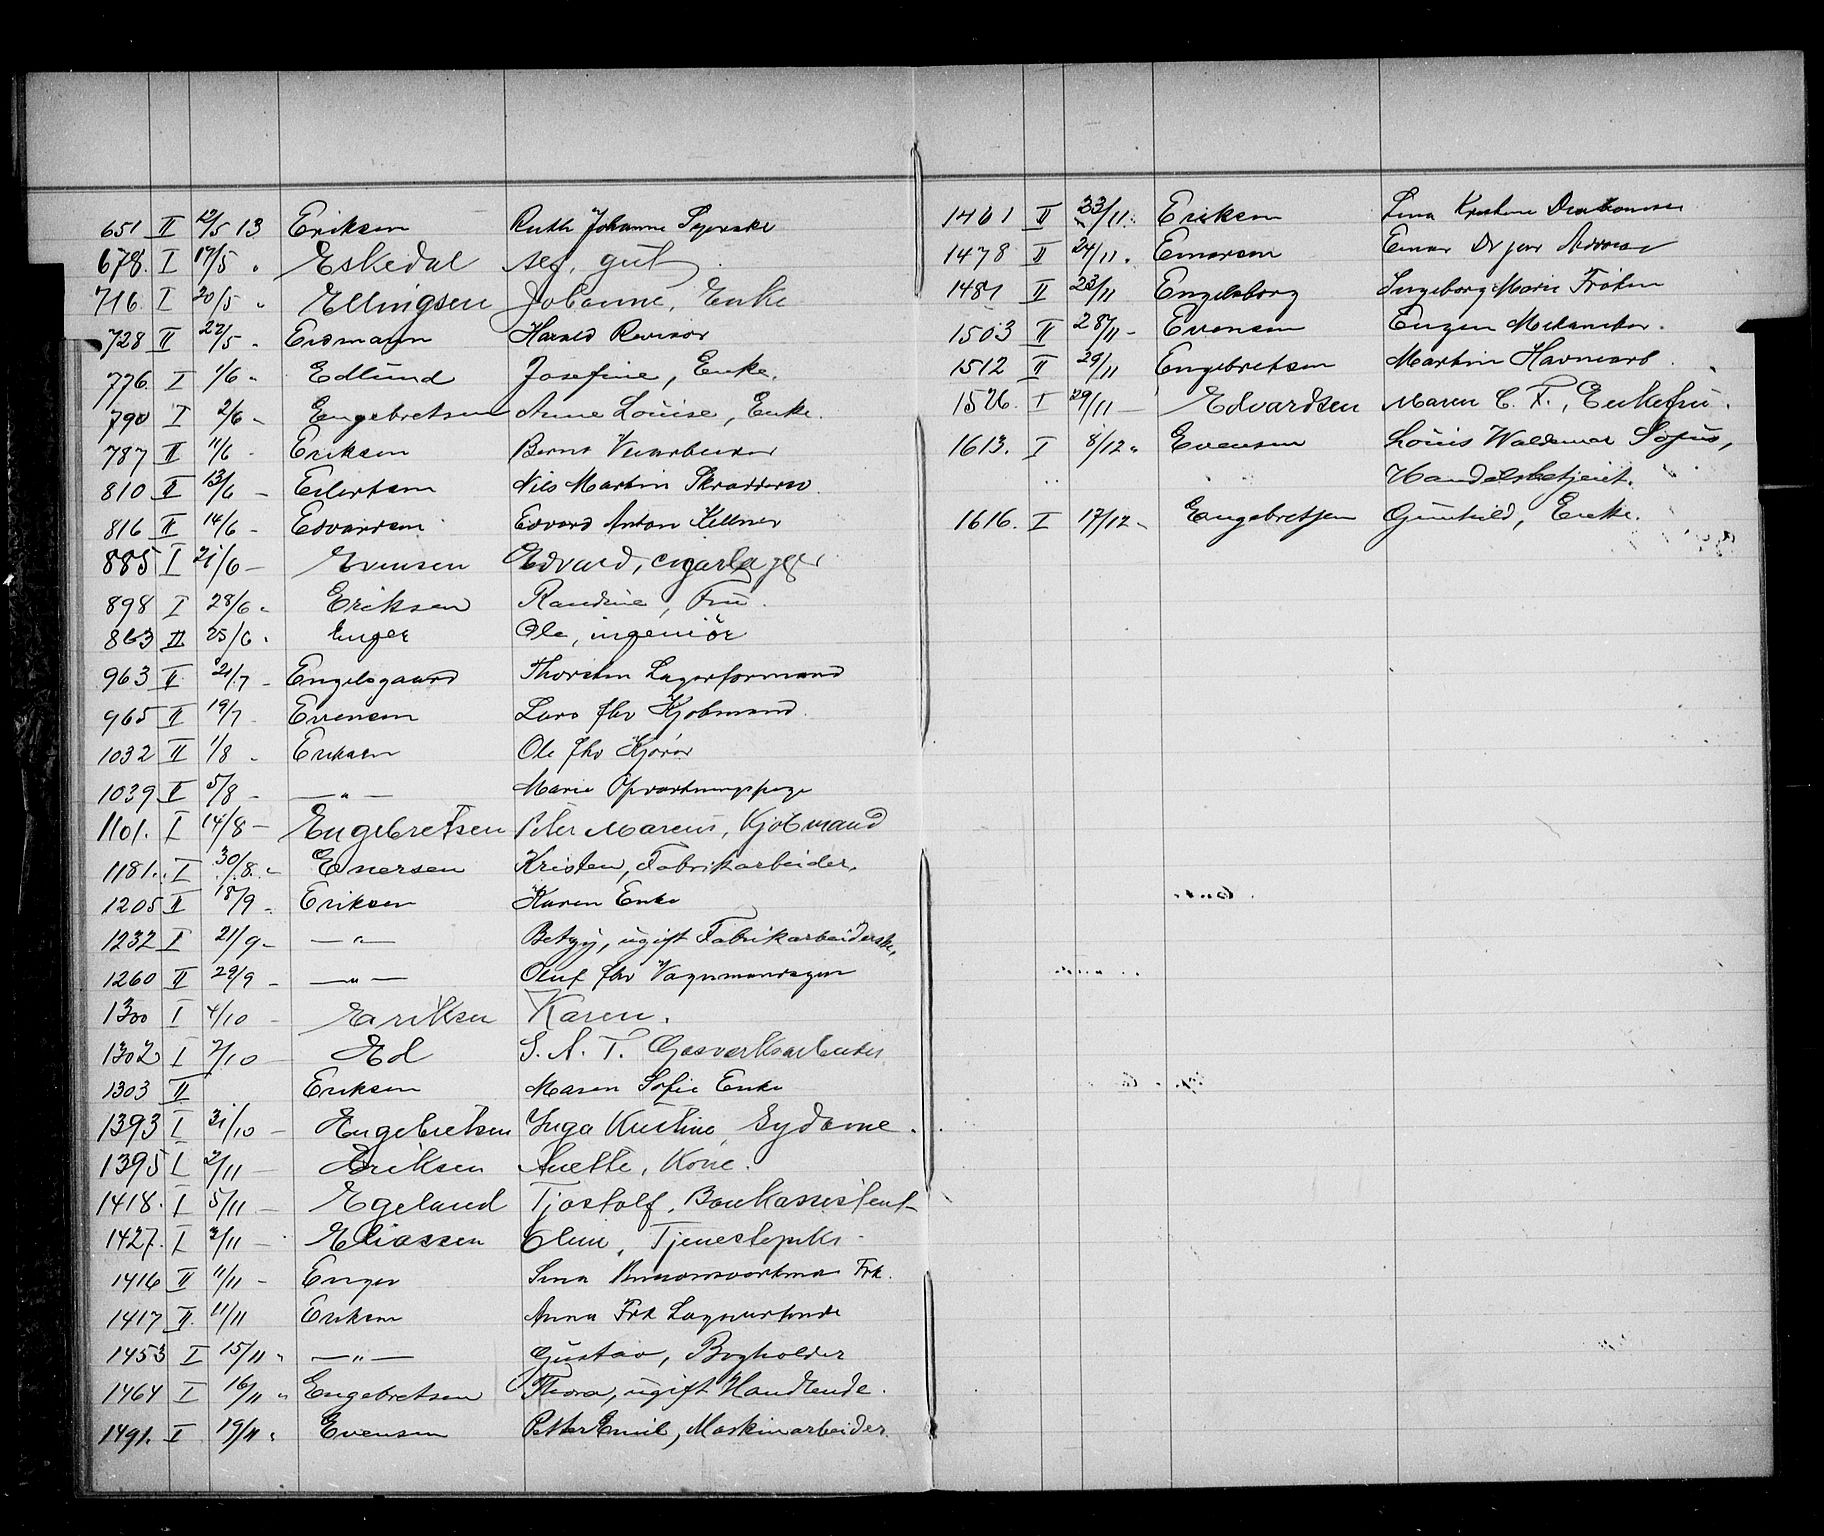 651 II 12/5 13 Eriksen Ruth Johanne Syerske
678. I 17/5 " Eskedal sef, gut
716. I 20/5 " Ellingsen Johanne, Enke
728 II 27/5 " Erdmann Harald Revisor
776. I 1/6 " Edlund Josefine, Enke.
790 I 2/6 " Engebretsen Anne Louise, Enke.
787 II 11/6 " Eriksen Bernt
810 II 13/6 - Eilertsen Nils Martin Skrædderm
816 II 14/6 - Edvardsen Edvard Anton Kellner
885 I 21/6 - Evensen Edvard, cigarlager
898 I 28/6 " Eriksen Randine, Fru.
863 II 25/6 " Enger Ole, ingeniör
963 II 21/7 - Engelsgaard Thorsten Lagerformand
965 II 19/7 - Evensen Lars fhv Kjøbmand.
1032 II 1/8 " Eriksen Ole fhv Kjører
1039 II 5/8 - —"— Marie Opvartningspige
1101. I 14/8 - Engebretsen Peter Marcus, Kjøbmand
1181. I 30/8 " Enersen Kristen, Fabrikarbeider.
1205 II 18/9 - Eriksen Karen Enke
1232 I 21/9 - —"— Betzy, ugift Fabrikarbeiderske.
1260 II 29/9 - —"— Oluf fhv Vognmandsgut
1300 I 4/10 - Eriksen Karen.
1302 I 7/10 - Ed S. A. T. Gasverksarbeider
1303 II Eriksen Maren Sofie Enke
1393 I 31/10 - Engebretsen Inga Kristine, Sydame.
1395 I 2/11 - Eriksen Anette, Kone.
1418. I 5/11 - Egeland Tjostolf, Bankassistent
1427. I 3/11 - Eliassen Oline, Tjenestepike
1416 II 11/11 - Enger Lina Frk.
1417 II 11/11 Eriksen Anna Frk
1453 I 15/11 " —"— Gustav, Bogholder
1464 I 16/11 " Engebretsen Thora, ugift Handlende.
1491. I 19/11 " Evensen Petter Emil, Maskinarbeider.
1461 II 23/11 " Eriksen Lina Kristine
1478 II 24/11 " Einarsen Einar
1481 II 23/11 Engelsborg Ingeborg Marie Frøken
1503 II 28/11 - Evensen Eugen Mekaniker.
1512 II 29/11 Engebretsen Martin Havnearb.
1526. I 29/11 - Edvardsen Maren C. F., Enkefru.
1613. I 8/12 " Evensen Louis Waldemar Sofus,
Handelsbetjent.
1616. I 17/12 " Engebretsen Gunhild, Enke.